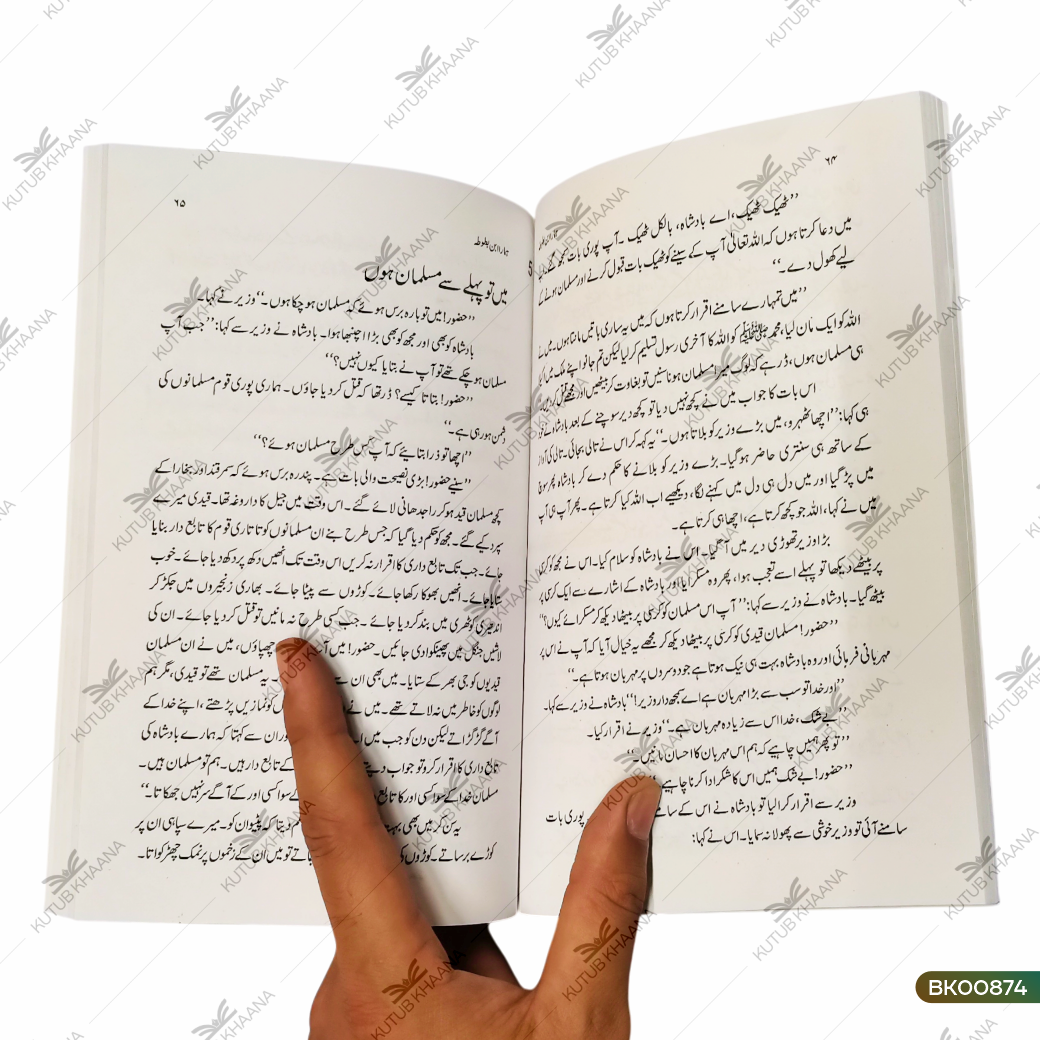 ۶۴
’’ٹھیک ٹھیک، اے بادشاہ، بالکل ٹھیک۔ آپ پوری بات سمجھ گئے
میں دعا کرتا ہوں کہ اللہ تعالیٰ آپ کے سینے کو ٹھیک بات قبول کرنے اور مسلمان ہونے کے
لیے کھول دے۔‘‘
’’میں تمہارے سامنے اقرار کرتا ہوں کہ میں یہ ساری باتیں مانتا ہوں۔ میں نے
اللہ کو ایک مان لیا، محمد ﷺ کو اللہ کا آخری رسول تسلیم کر لیا لیکن تم جانو اپنے ملک میں
ہی مسلمان ہوں، ڈر ہے کہ لوگ میرا مسلمان ہونا سنیں تو بغاوت کر بیٹھیں اور مجھے قتل کر دیں
اس بات کا جواب میں نے کچھ نہیں دیا تو کچھ دیر سوچنے کے بعد بادشاہ نے خود
ہی کہا: ’’اچھا ٹھہرو، میں بڑے وزیر کو بلاتا ہوں۔‘‘ یہ کہہ کر اس نے تالی بجائی۔ تالی کی آواز
کے ساتھ ہی سنتری حاضر ہو گیا۔ بڑے وزیر کو بلانے کا حکم دے کر بادشاہ پھر سوچ
میں پڑ گیا اور میں دل ہی دل میں کہنے لگا، دیکھیے اب اللہ کیا کرتا ہے۔ پھر آپ ہی آپ
میں نے کہا، اللہ جو کچھ کرتا ہے، اچھا ہی کرتا ہے۔
بڑا وزیر تھوڑی دیر میں آ گیا۔ اس نے بادشاہ کو سلام کیا۔ اس نے مجھ کو کرسی
پر بیٹھے دیکھا تو پہلے اسے تعجب ہوا، پھر وہ مسکرایا اور بادشاہ کے اشارے سے ایک کرسی پر
بیٹھ گیا۔ بادشاہ نے وزیر سے کہا: ’’آپ اس مسلمان کو کرسی پر بیٹھا دیکھ کر مسکرائے کیوں؟‘‘
’’حضور! مسلمان قیدی کو کرسی پر بیٹھا دیکھ کر مجھے یہ خیال آیا کہ آپ نے اس پر
مہربانی فرمائی اور وہ بادشاہ بہت ہی نیک ہوتا ہے جو دوسروں پر مہربان ہوتا ہے۔‘‘
’’اور خدا تو سب سے بڑا مہربان ہے اے سمجھ دار وزیر!‘‘ بادشاہ نے وزیر سے کہا۔
’’بے شک، خدا اس سے زیادہ مہربان ہے۔‘‘ وزیر نے اقرار کیا۔
’’تو پھر ہمیں چاہیے کہ ہم اس مہربان کا احسان مانیں۔‘‘
’’حضور! بے شک ہمیں اس کا شکر ادا کرنا چاہیے۔‘‘
وزیر سے اقرار کرالیا تو بادشاہ نے اس کے سامنے پوری بات
سامنے آئی تو وزیر خوشی سے پھولا نہ سمایا۔ اس نے کہا:
۶۵
ہمارا ابن بطوطہ
میں تو پہلے سے مسلمان ہوں
’’حضور! میں تو بارہ برس ہوئے کہ مسلمان ہو چکا ہوں۔‘‘ وزیر نے کہا۔
بادشاہ کو بھی اور مجھ کو بھی بڑا اچنبھا ہوا۔ بادشاہ نے وزیر سے کہا: ’’جب آپ
مسلمان ہو چکے تھے تو آپ نے بتایا کیوں نہیں؟‘‘
’’حضور! بتاتا کیسے؟ ڈر تھا کہ قتل کر دیا جاؤں۔ ہماری پوری قوم مسلمانوں کی
دشمن ہو رہی ہے۔‘‘
’’اچھا تو ذرا بتائیے کہ آپ کس طرح مسلمان ہوئے؟‘‘
’’سنیے حضور! بڑی نصیحت والی بات ہے۔ پندرہ برس ہوئے کہ سمرقند اور بخارا کے
کچھ مسلمان قید ہو کر راجدھانی لائے گئے۔ اس وقت میں جیل کا داروغہ تھا۔ قیدی میرے
سپرد کیے گئے۔ مجھ کو حکم دیا گیا کہ جس طرح بنے ان مسلمانوں کو تاتاری قوم کا تابع دار بنایا
جائے۔ جب تک تابع داری کا اقرار نہ کریں اس وقت تک انھیں دکھ پر دکھ دیا جائے۔ خوب
ستایا جائے۔ انھیں بھوکا رکھا جائے۔ کوڑوں سے پیٹا جائے۔ بھاری زنجیروں میں جکڑ کر
اندھیری کوٹھری میں بند کر دیا جائے۔ جب کسی طرح نہ مانیں تو قتل کر دیا جائے۔ ان کی
لاشیں جنگل میں پھینکوا دی جائیں۔ حضور! میں آپ چھپاؤں، میں نے ان مسلمان
قیدیوں کو جی بھر کے ستایا۔ میں بھی ان سے یہ مسلمان تھے تو قیدی، مگر ہم
لوگوں کو خاطر میں نہ لاتے تھے۔ میں نے کو نمازیں پڑھتے، اپنے خدا کے
آگے گڑگڑاتے لیکن دن کو جب میں اور ان سے کہتا کہ ہمارے بادشاہ کی
تابع داری کا اقرار کرو تو جواب دیتے کے تابع دار ہیں۔ ہم تو مسلمان ہیں۔
مسلمان خدا کے سوا کسی اور کا تابع کے سوا کسی اور کے آگے سر نہیں جھکاتا۔‘‘
یہ سن کر میں بھی بہت دیتا کہ پیٹو ان کو۔ میرے سپاہی ان پر
کوڑے برساتے۔ کوڑوں تو میں ان کے زخموں پر نمک چھڑکواتا۔
BK00874
KUTUB KHAANA